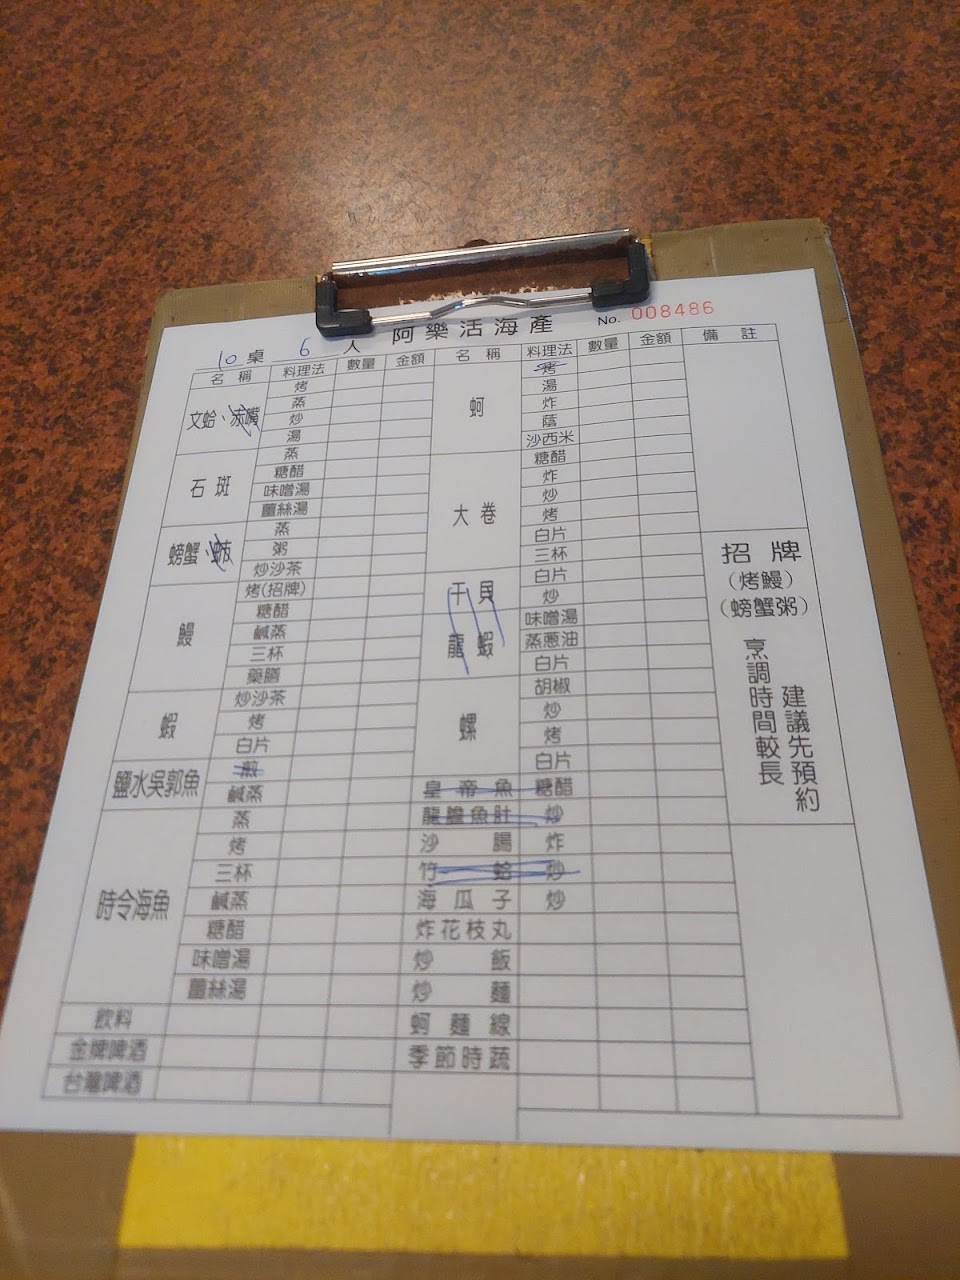 阿樂活海產 No. 008486
10 桌 6 人
名稱 料理法 數量 金額 名稱 料理法 數量 金額 備註
文蛤、赤嘴
烤
蒸
炒
湯
石斑
蒸
糖醋
味噌湯
薑絲湯
螃蟹、
蒸
粥
炒沙茶
鰻
烤(招牌)
糖醋
鹹蒸
三杯
藥膳
蝦
炒沙茶
烤
白片
鹽水吳郭魚
煎
鹹蒸
時令海魚
蒸
烤
三杯
鹹蒸
糖醋
味噌湯
薑絲湯
飲料
金牌啤酒
台灣啤酒
蚵
烤
湯
炸
蔭
沙西米
大卷
糖醋
炸
炒
烤
白片
三杯
干貝
白片
炒
龍蝦
味噌湯
蒸蔥油
白片
螺
胡椒
炒
烤
白片
皇帝魚 糖醋
龍膽魚肚 炒
沙腸 炸
竹蛤 炒
海瓜子 炒
炸花枝丸
炒飯
炒麵
蚵麵線
季節時蔬
招牌
(烤鰻)
(螃蟹粥)
烹調時間較長
建議先預約